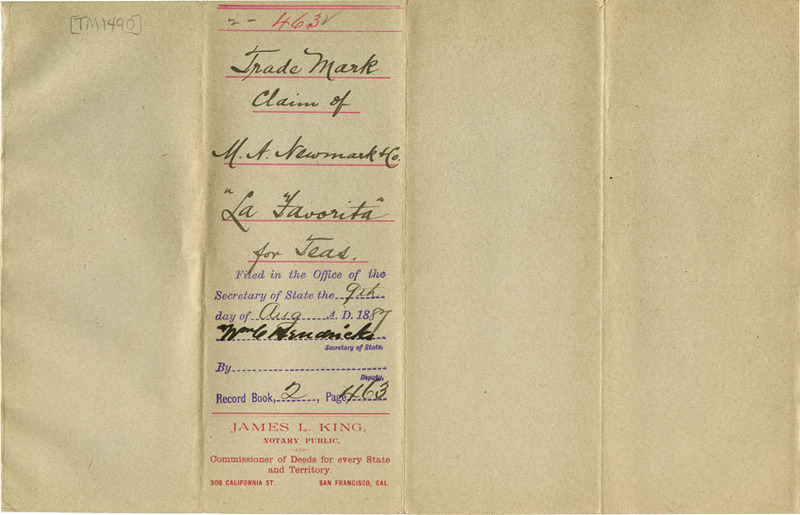 [TM1490]
2 - 463
Trade Mark
Claim of
M. A. Newmark & Co.
"La Favorita"
for Teas.
Filed in the Office of the
Secretary of State the 9th
day of Aug A. D. 1887
Wm C Hendricks
Secretary of State.
By
Deputy.
Record Book, 2, Page 463
JAMES L. KING,
NOTARY PUBLIC,
—AND—
Commissioner of Deeds for every State
and Territory.
308 CALIFORNIA ST. SAN FRANCISCO, CAL.